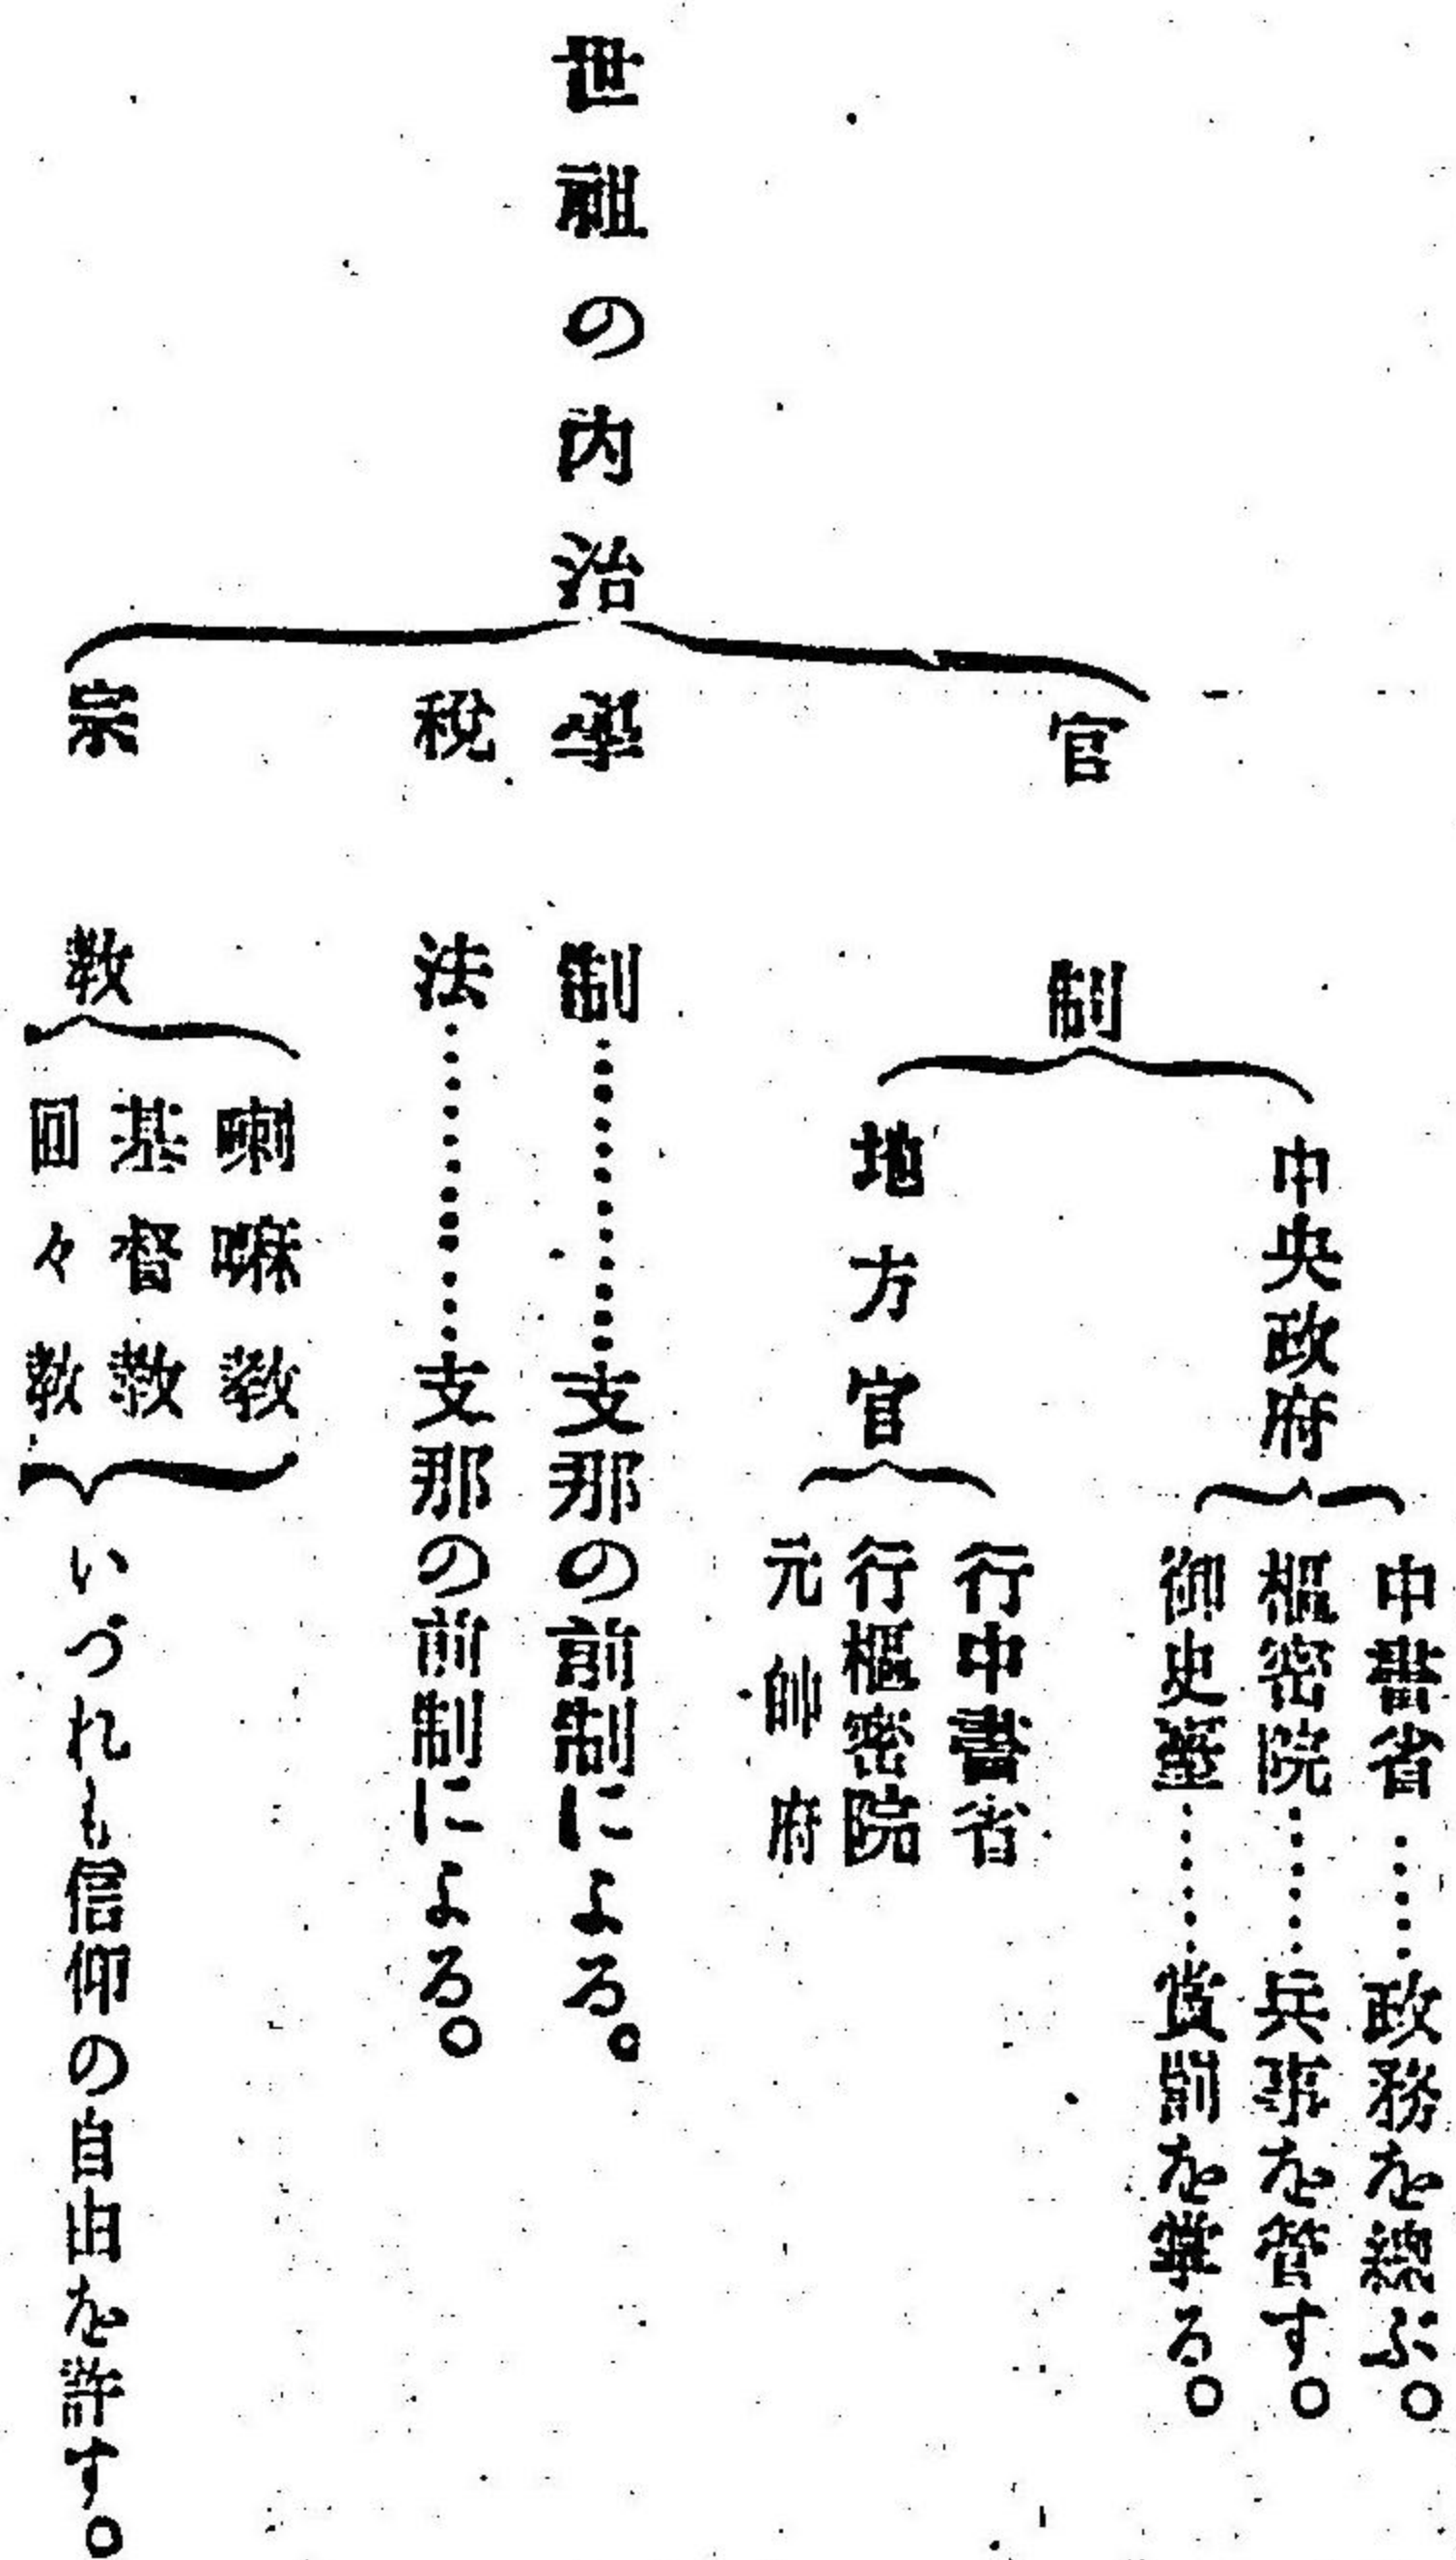 世祖の内治
官制
中央政府
中書省……政務を總ぶ。
樞密院……兵事を管す。
御史臺……賞罰を掌る。
地方官
行中書省
行樞密院
元帥府
學制…………支那の前制による。
税法…………支那の前制による。
宗教
喇嘛教
基督教
回々教
いづれも信仰の自由を許す。